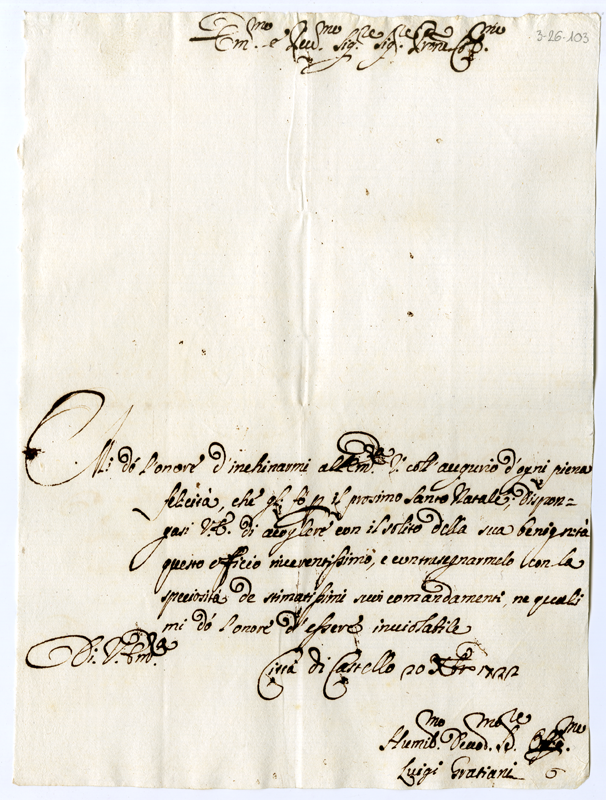 3-26-103
Em.mo e Rev.mo Sig.re Sig.re P.rone Col.mo
Mi dò l'onore d'inchinarmi all'Em.za V. coll'augurio d'ogni piena
felicità, che gli fò p il prosimo Santo Natale; Dispon=
gasi V. E. di acoglere con il solito della sua benignità
questo officio riverentissimo, e contrasegnarmelo con la
speciosità de stimatissimi suoi comandamenti, ne quali
mi dò l'onore d'essere inviolabile
Di V. Em.za
Città di Castello 20 Xbre 1722
Humil.mo Devod.mo S.re
Luigi Gratiani